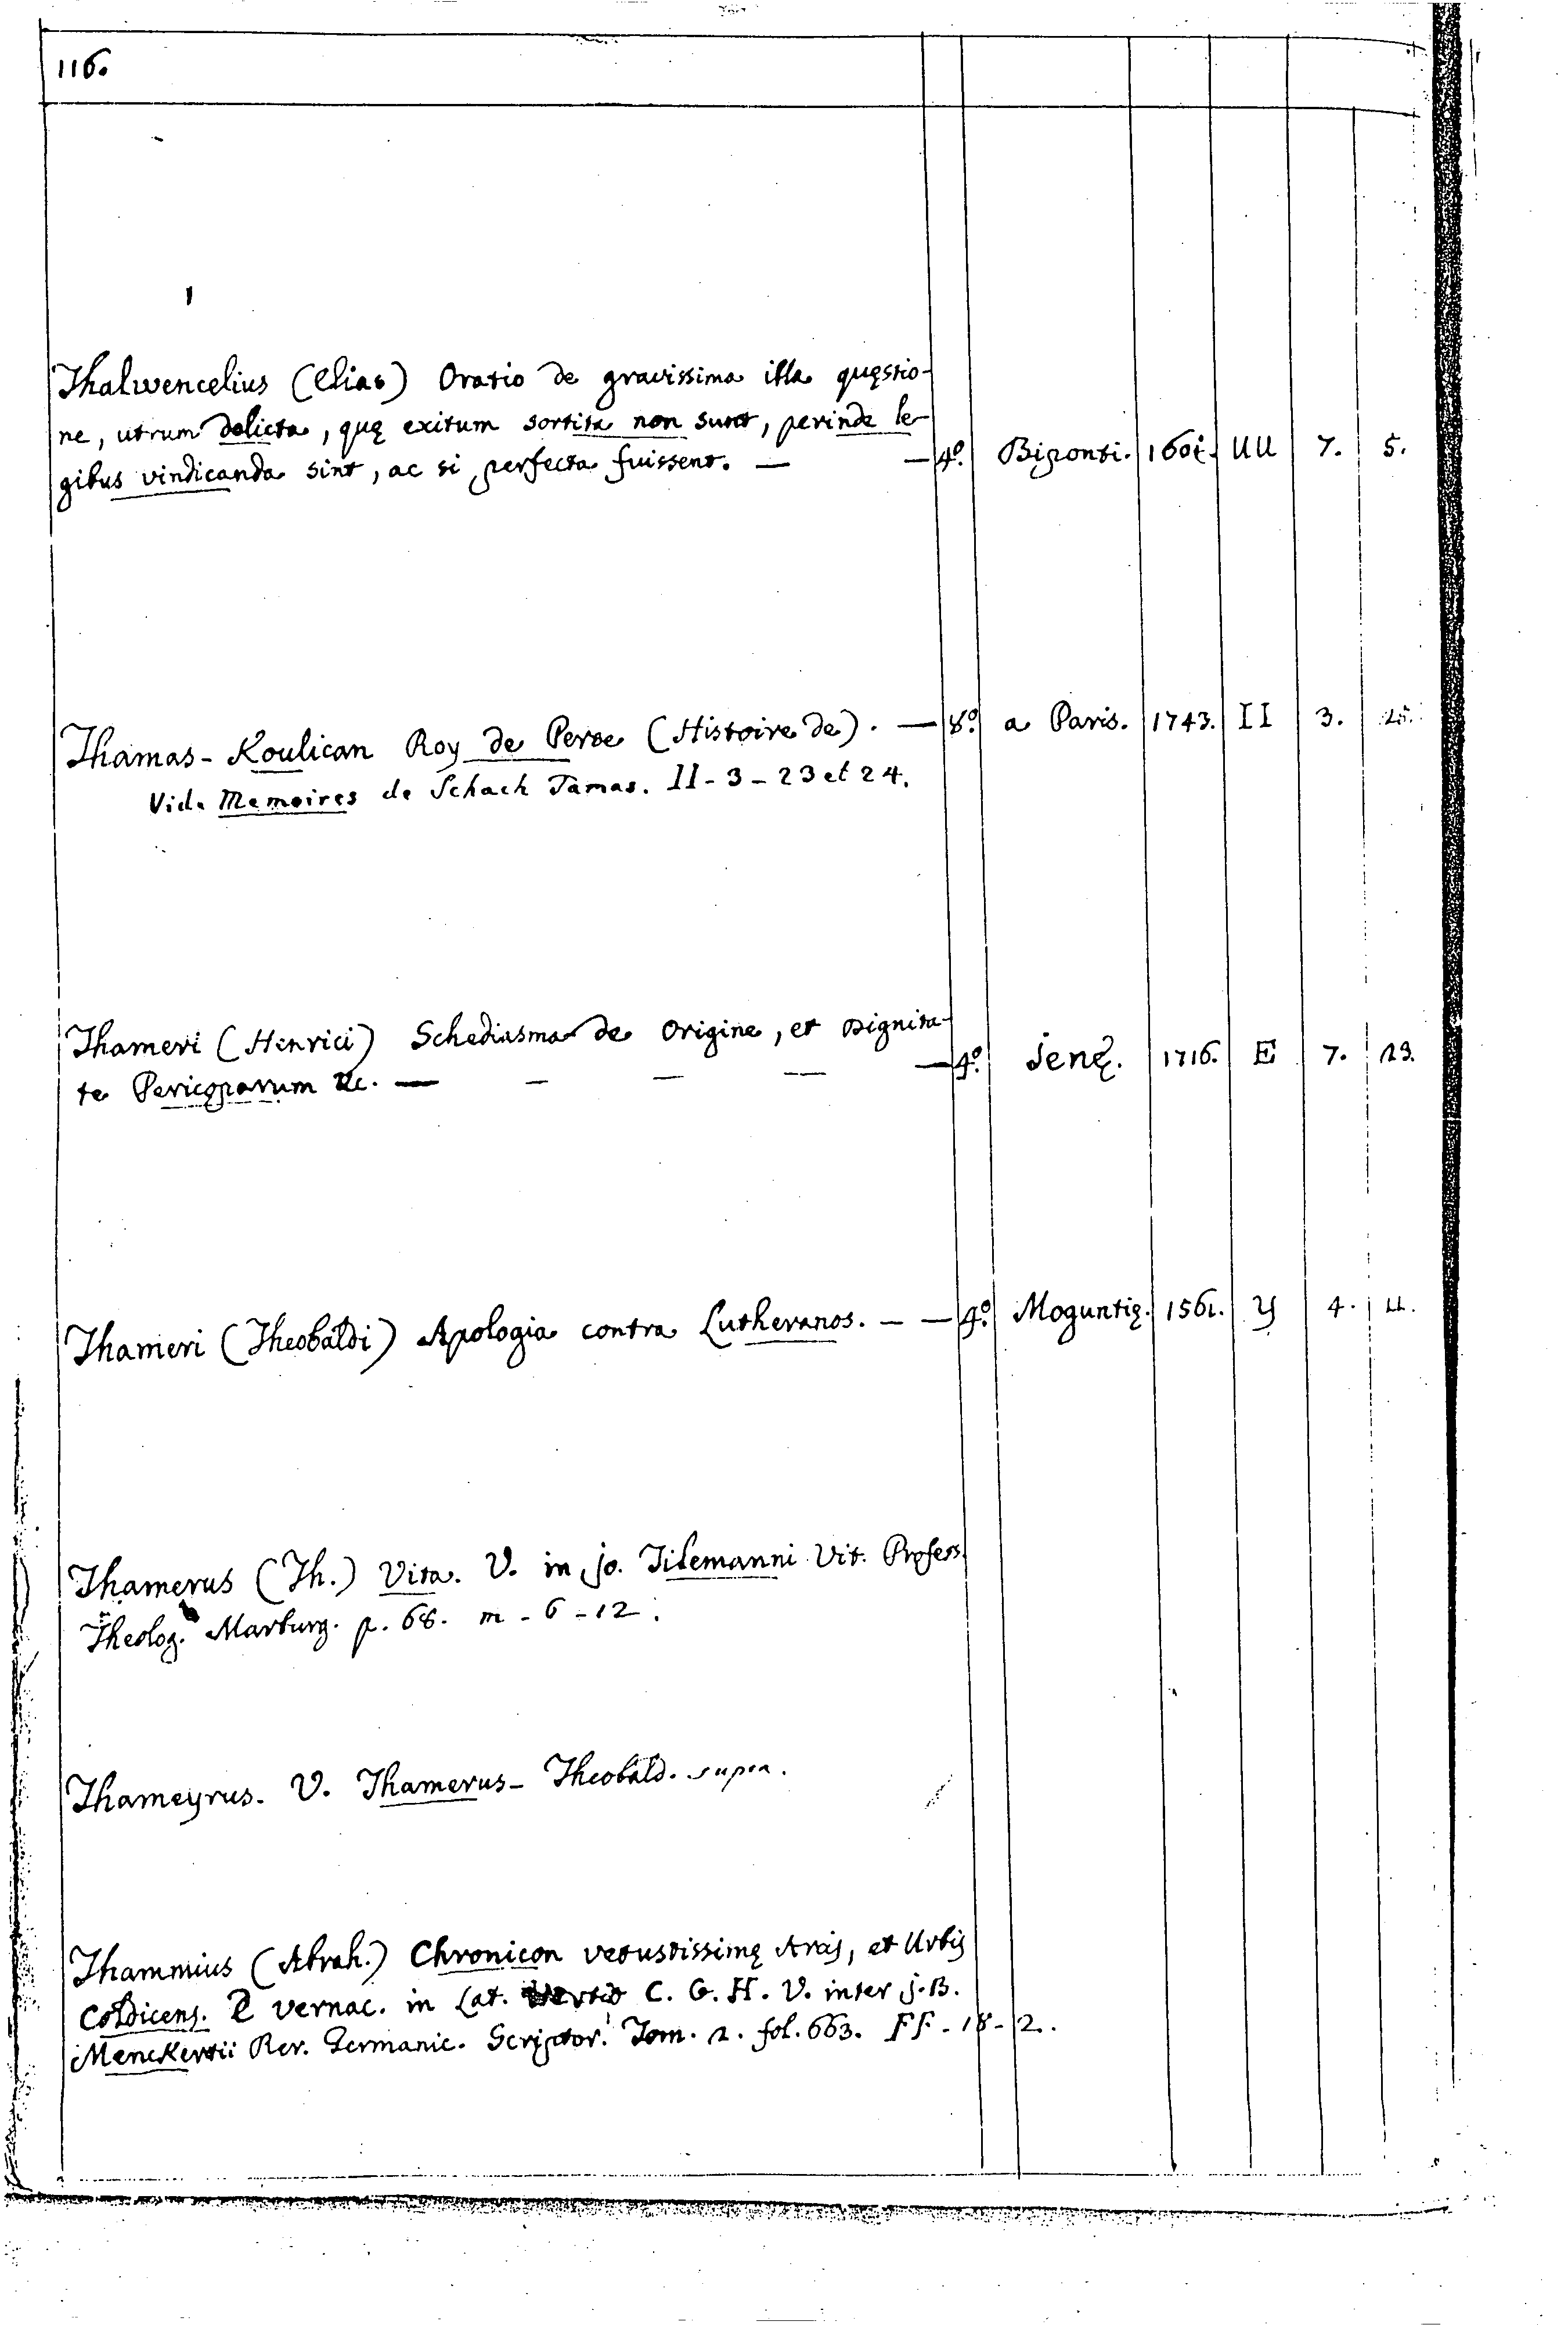 116.
Thalwencelius (Elias) Oratio de gravissima illa quęstio-
ne, utrum delicta, quę exitum sortita non sunt, perinde le-
gibus vindicanda sint, ac si perfecta fuissent. — — 4º. Biponti. UU 7. 5.
Thamas-Koulican Roy de Perse (Histoire de). — 8º. a Paris. 1743. II 3. 25.
Vide Memoires de Schach Tamas. II-3-23 et 24.
Thameri (Henrici) Schediasma de Origine, et Dignita-
te Pericoparum &c. — — — — — 4º. Jenę. 1716. E 7. 23.
Thameri (Theobaldi) Apologia contra Lutheranos. — — 4º. Moguntię. 1561. Y 4. 11.
Thamerus (Th.) Vita. V. in Jo. Tilemanni Vit. Profess.
Theolog. Marburg. p. 68. m-6-12.
Thameyrus. V. Thamerus-Theobald. supra.
Thammius (Abrah.) Chronicon vetustissimę Arcis, et Urbis
Coldicens. E vernac. in Lat. C. G. H. V. inter J. B.
Menckenii Rer. Germanic. Scriptor. Tom. 2. fol. 663. FF-18-2.